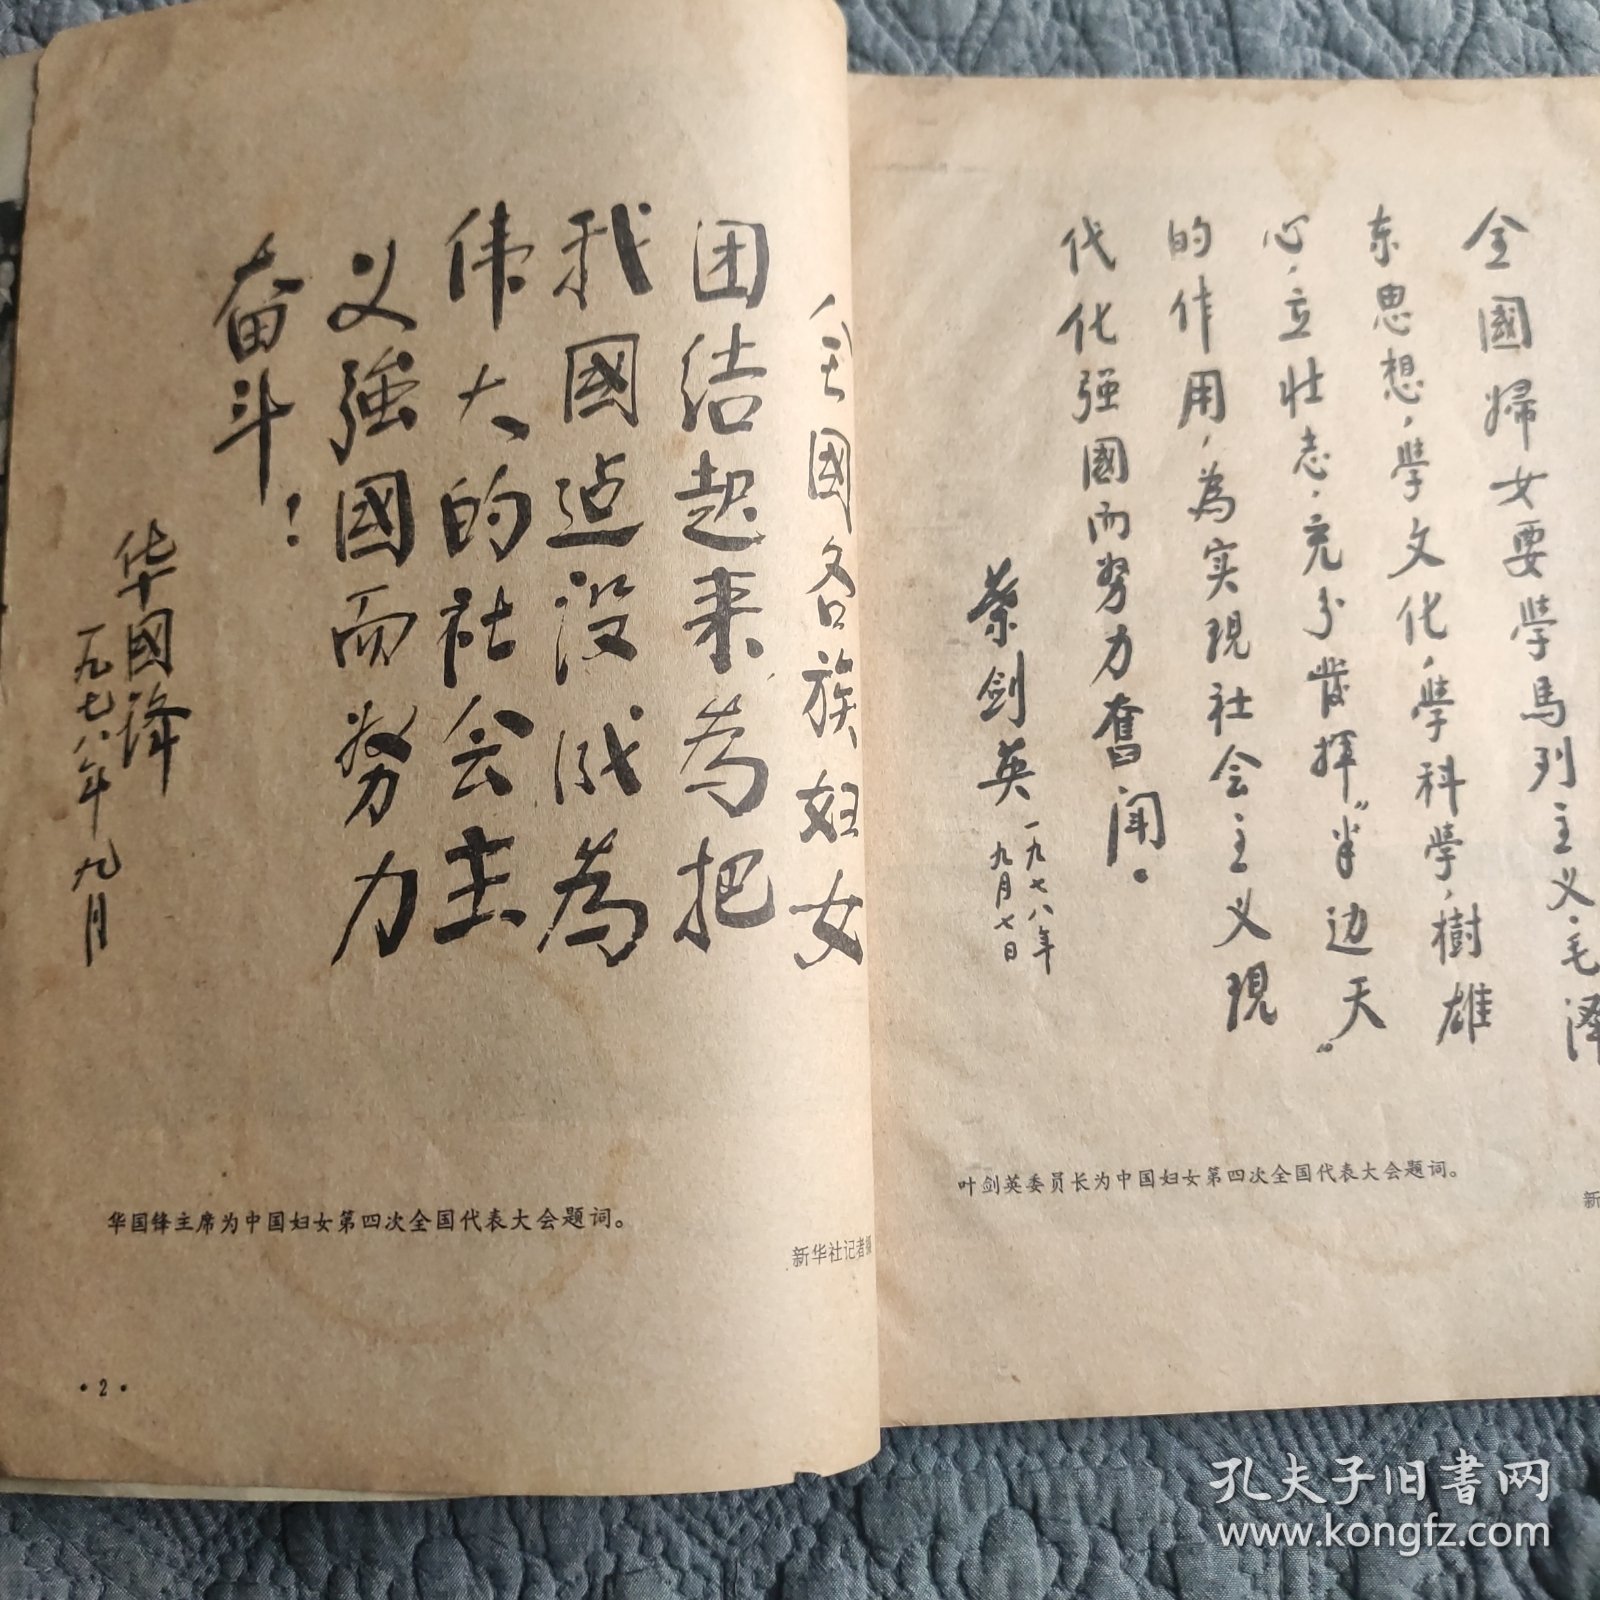 全國各族妇女
团结起来为把
我國建设成为
伟大的社会主
义強國而努力
奋斗！
华國锋
一九七八年九月
华国锋主席为中国妇女第四次全国代表大会题词。
新华社记者摄
·2·
全國婦女要學馬列主义、毛泽
东思想，學文化，學科學，樹雄
心，立壮志，充分發揮“半边天”
的作用，為实現社会主义現
代化強國而努力奮闘。
葉剑英
一九七八年
九月七日
叶剑英委员长为中国妇女第四次全国代表大会题词。
新
孔夫子旧書网
www.kongfz.com